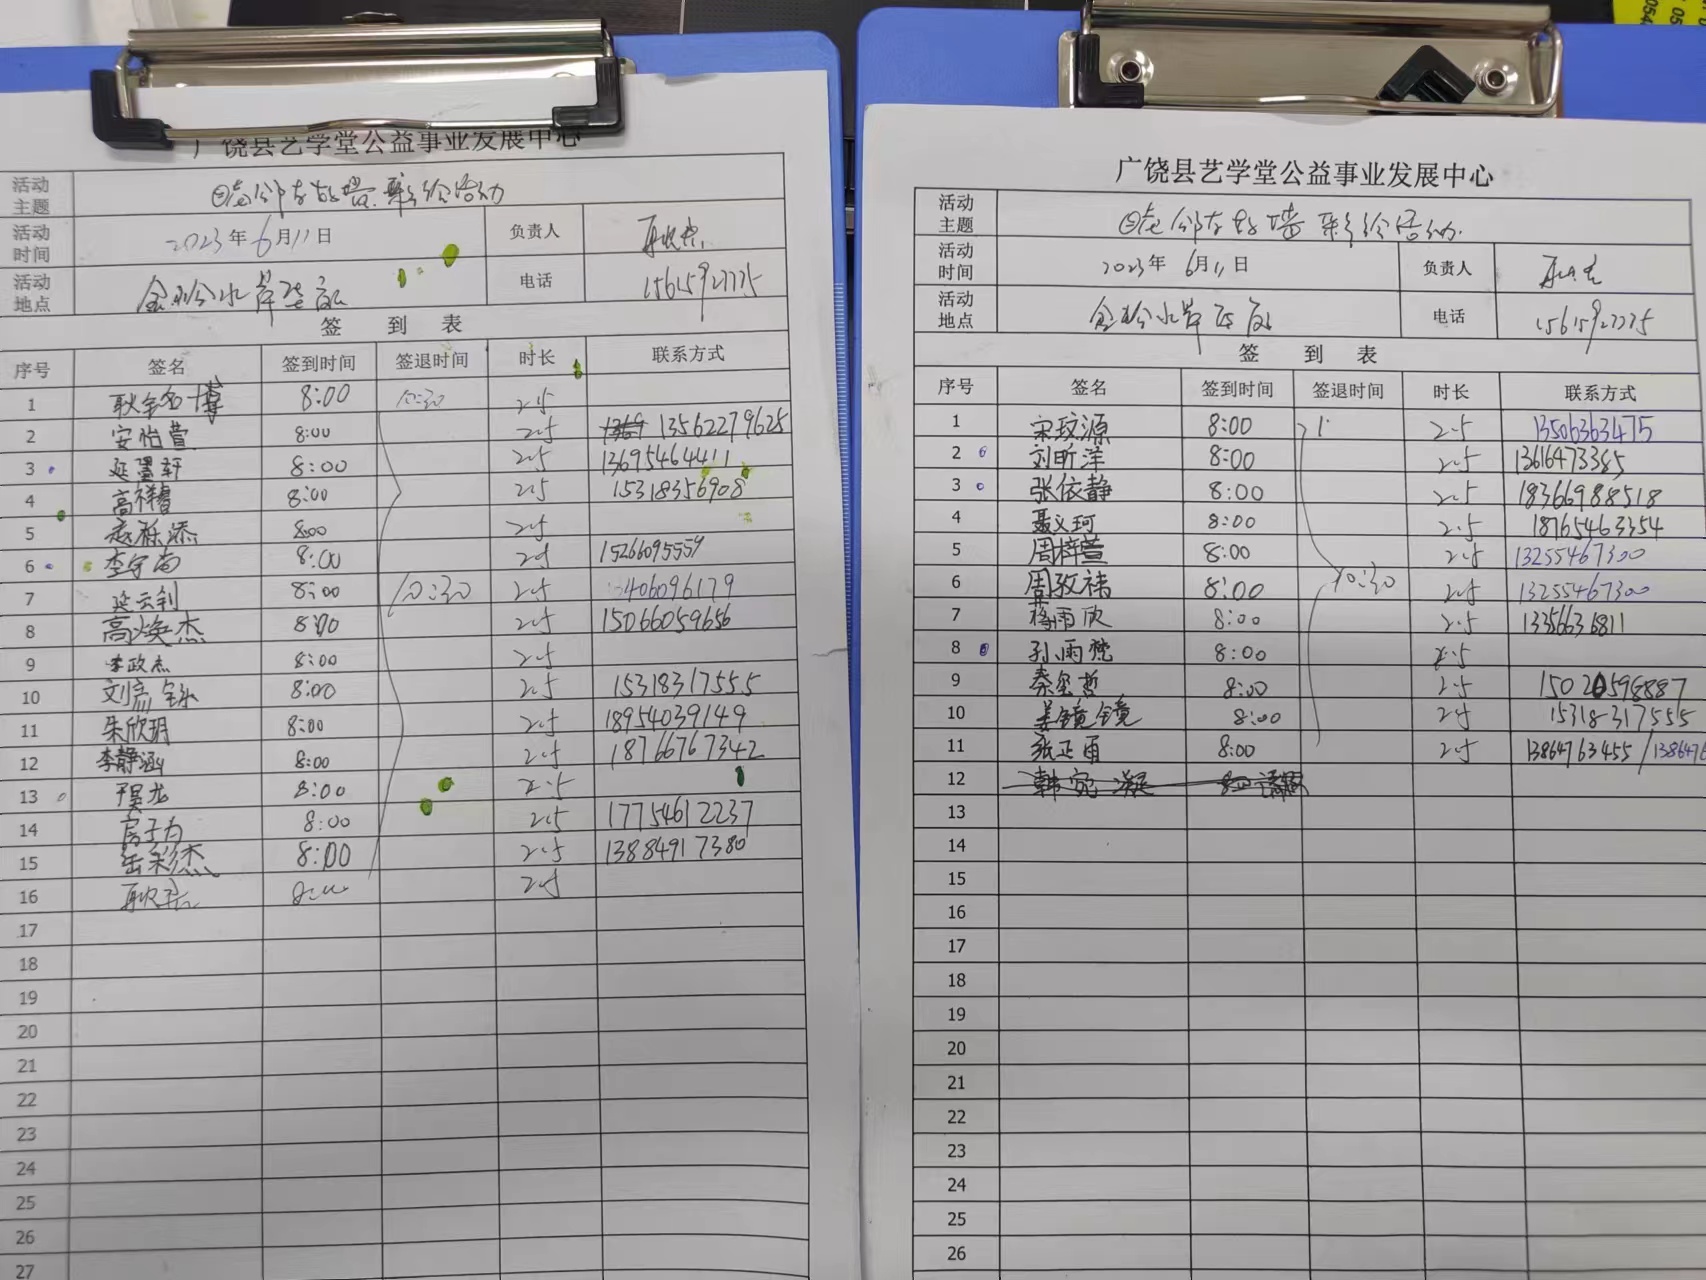 广饶县艺学堂公益事业发展中心
活动主题 彩绘活动
活动时间 2023年6月11日 负责人
活动地点 电话 15615927775
签到表
序号 签名 签到时间 签退时间 时长 联系方式
1 8:00 10:30 2.5
2 安怡萱 8:00 2.5 13562279625
3 延墨轩 8:00 2.5 13695464411
4 高祥睿 8:00 2.5 15318356908
5 8:00 2.5
6 8:00 2.5 15266095559
7 8:00 10:30 2.5 406096179
8 高焕杰 8:00 2.5 15066059656
9 李政杰 8:00 2.5
10 8:00 2.5 15318317555
11 朱欣玥 8:00 2.5 18954039149
12 李静涵 8:00 2.5 18766767342
13 8:00 2.5
14 房子为 8:00 2.5 17754612237
15 8:00 2.5 13884917380
16 2.5
17
18
19
20
21
22
23
24
25
26
27
广饶县艺学堂公益事业发展中心
活动主题 彩绘活动
活动时间 2023年6月11日 负责人
活动地点 电话 15615927775
签到表
序号 签名 签到时间 签退时间 时长 联系方式
1 宋玟源 8:00 2.5 13506363475
2 刘昕洋 8:00 2.5 13616473385
3 张依静 8:00 2.5 18366988518
4 聂义珂 8:00 2.5 18765463354
5 周梓萱 8:00 2.5 13255467300
6 周孜祎 8:00 10:30 2.5 13255467300
7 蒋雨欣 8:00 2.5 13356636811
8 孙雨梵 8:00 2.5
9 秦玺哲 8:00 2.5 15020598887
10 姜镜镜 8:00 2.5 15318317555
11 张正甬 8:00 2.5 13864763455 /
12
13
14
15
16
17
18
19
20
21
22
23
24
25
26